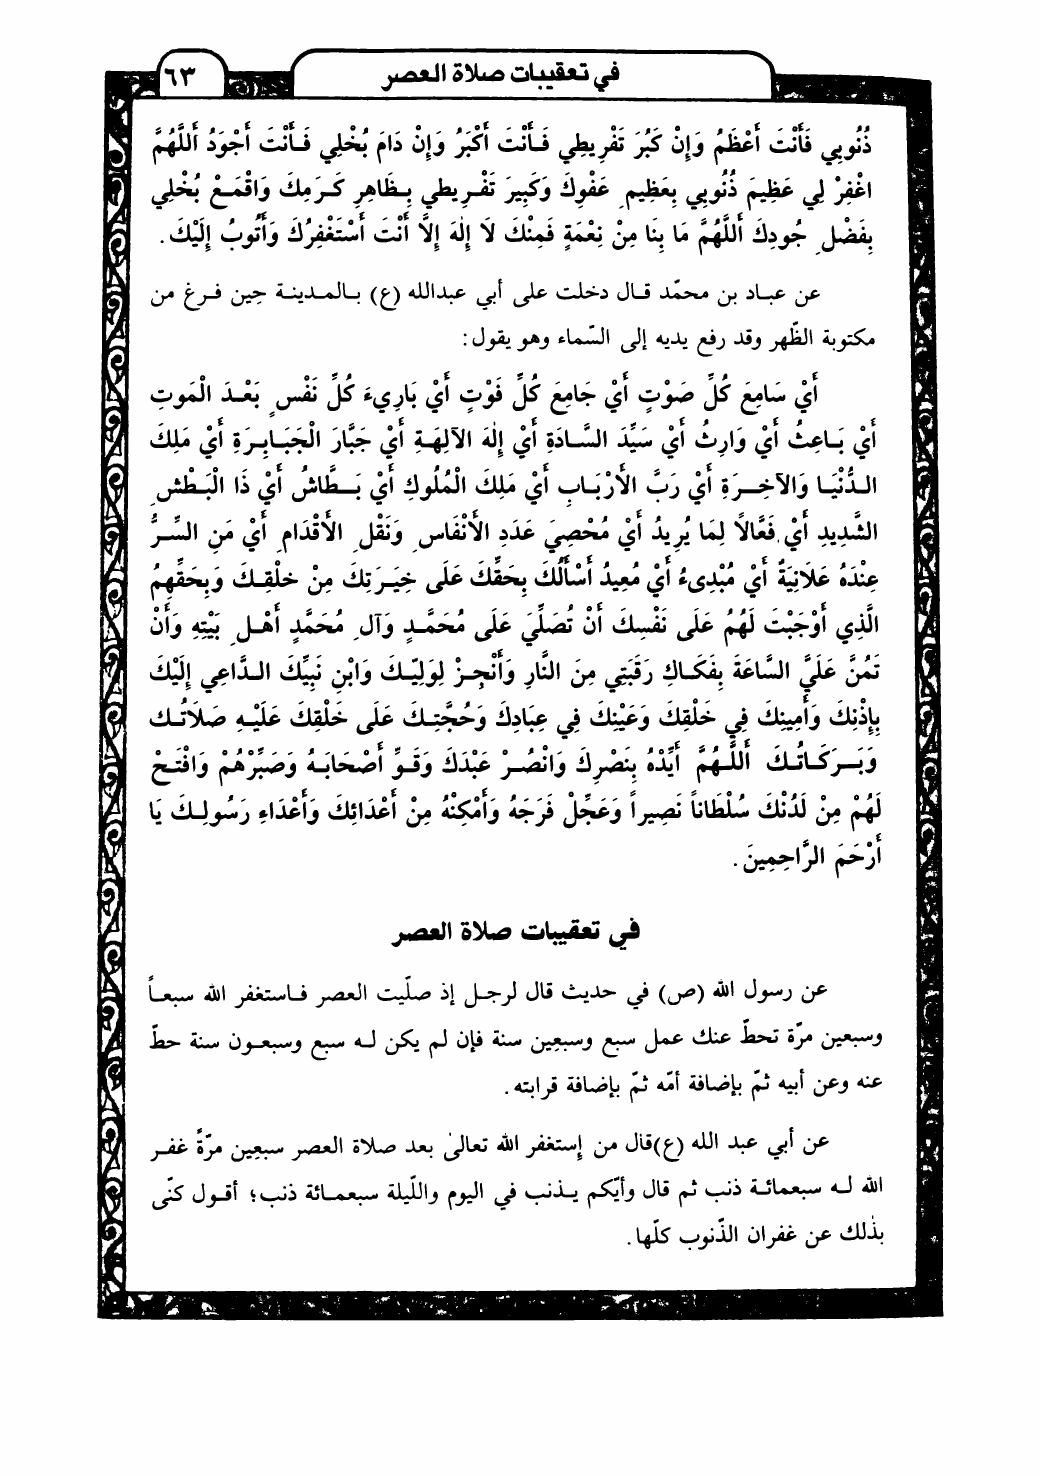 في تعقيبات صلاة العصر
٦٣
ذُنُوبِي فَأَنْتَ أَعْظَمُ وَإِنْ كَبُرَ تَفْرِيطِي فَأَنْتَ أَكْبَرُ وَإِنْ دَامَ بُخْلِي فَأَنْتَ أَجْوَدُ أَللَّهُمَّ
اغْفِرْ لِي عَظِيمَ ذُنُوبِي بِعَظِيمِ عَفْوِكَ وَكَبِيرَ تَفْرِيطِي بِظَاهِرِ كَرَمِكَ وَاقْمَعْ بُخْلِي
بِفَضْلِ جُودِكَ أَللَّهُمَّ مَا بِنَا مِنْ نِعْمَةٍ فَمِنْكَ لَا إِلٰهَ إِلَّا أَنْتَ أَسْتَغْفِرُكَ وَأَتُوبُ إِلَيْكَ.
عن عباد بن محمّد قال دخلت على أبي عبدالله (ع) بالمدينة حِين فرغ من
مكتوبة الظّهر وقد رفع يديه إلى السّماء وهو يقول:
أَيْ سَامِعَ كُلِّ صَوْتٍ أَيْ جَامِعَ كُلِّ فَوْتٍ أَيْ بَارِيءَ كُلِّ نَفْسٍ بَعْدَ الْمَوتِ
أَيْ بَاعِثُ أَيْ وَارِثُ أَيْ سَيِّدَ السَّادَةِ أَيْ إِلٰهَ الآلِهَةِ أَيْ جَبَّارَ الْجَبَابِرَةِ أَيْ مَلِكَ
الدُّنْيَا وَالآخِرَةِ أَيْ رَبَّ الأَرْبَابِ أَيْ مَلِكَ الْمُلُوكِ أَيْ بَطَّاشُ أَيْ ذَا الْبَطْشِ
الشَّدِيدِ أَيْ فَعَّالاً لِمَا يُرِيدُ أَيْ مُحْصِيَ عَدَدِ الأَنْفَاسِ وَنَقْلِ الأَقْدَامِ أَيْ مَنِ السِّرُّ
عِنْدَهُ عَلَانِيَةٌ أَيْ مُبْدِىءُ أَيْ مُعِيدُ أَسْأَلُكَ بِحَقِّكَ عَلَى خِيَرَتِكَ مِنْ خَلْقِكَ وَبِحَقِّهِمُ
الَّذِي أَوْجَبْتَ لَهُمْ عَلَى نَفْسِكَ أَنْ تُصَلِّيَ عَلَى مُحَمَّدٍ وَآلِ مُحَمَّدٍ أَهْلِ بَيْتِهِ وَأَنْ
تَمُنَّ عَلَيَّ السَّاعَةَ بِفَكَاكِ رَقَبَتِي مِنَ النَّارِ وَأَنْجِزْ لِوَلِيِّكَ وَابْنِ نَبِيِّكَ الدَّاعِي إِلَيْكَ
بِإِذْنِكَ وَأَمِينِكَ فِي خَلْقِكَ وَعَيْنِكَ فِي عِبَادِكَ وَحُجَّتِكَ عَلَى خَلْقِكَ عَلَيْهِ صَلَاتُكَ
وَبَرَكَاتُكَ أَللَّهُمَّ أَيِّدْهُ بِنَصْرِكَ وَانْصُرْ عَبْدَكَ وَقَوِّ أَصْحَابَهُ وَصَبِّرْهُمْ وَافْتَحْ
لَهُمْ مِنْ لَدُنْكَ سُلْطَاناً نَصِيراً وَعَجِّلْ فَرَجَهُ وَأَمْكِنْهُ مِنْ أَعْدَائِكَ وَأَعْدَاءِ رَسُولِكَ يَا
أَرْحَمَ الرَّاحِمِينَ.
في تعقيبات صلاة العصر
عن رسول الله (ص) في حديث قال لرجل إذ صلّيت العصر فاستغفر الله سبعاً
وسبعين مرّة تحطّ عنك عمل سبع وسبعين سنة فإن لم يكن له سبع وسبعون سنة حطّ
عنه وعن أبيه ثمّ بإضافة أمّه ثمّ بإضافة قرابته.
عن أبي عبد الله (ع)قال من إستغفر الله تعالىٰ بعد صلاة العصر سبعين مرّةً غفر
الله له سبعمائة ذنب ثم قال وأيّكم يذنب في اليوم واللّيلة سبعمائة ذنب؛ أقول كنّى
بذٰلك عن غفران الذّنوب كلّها.